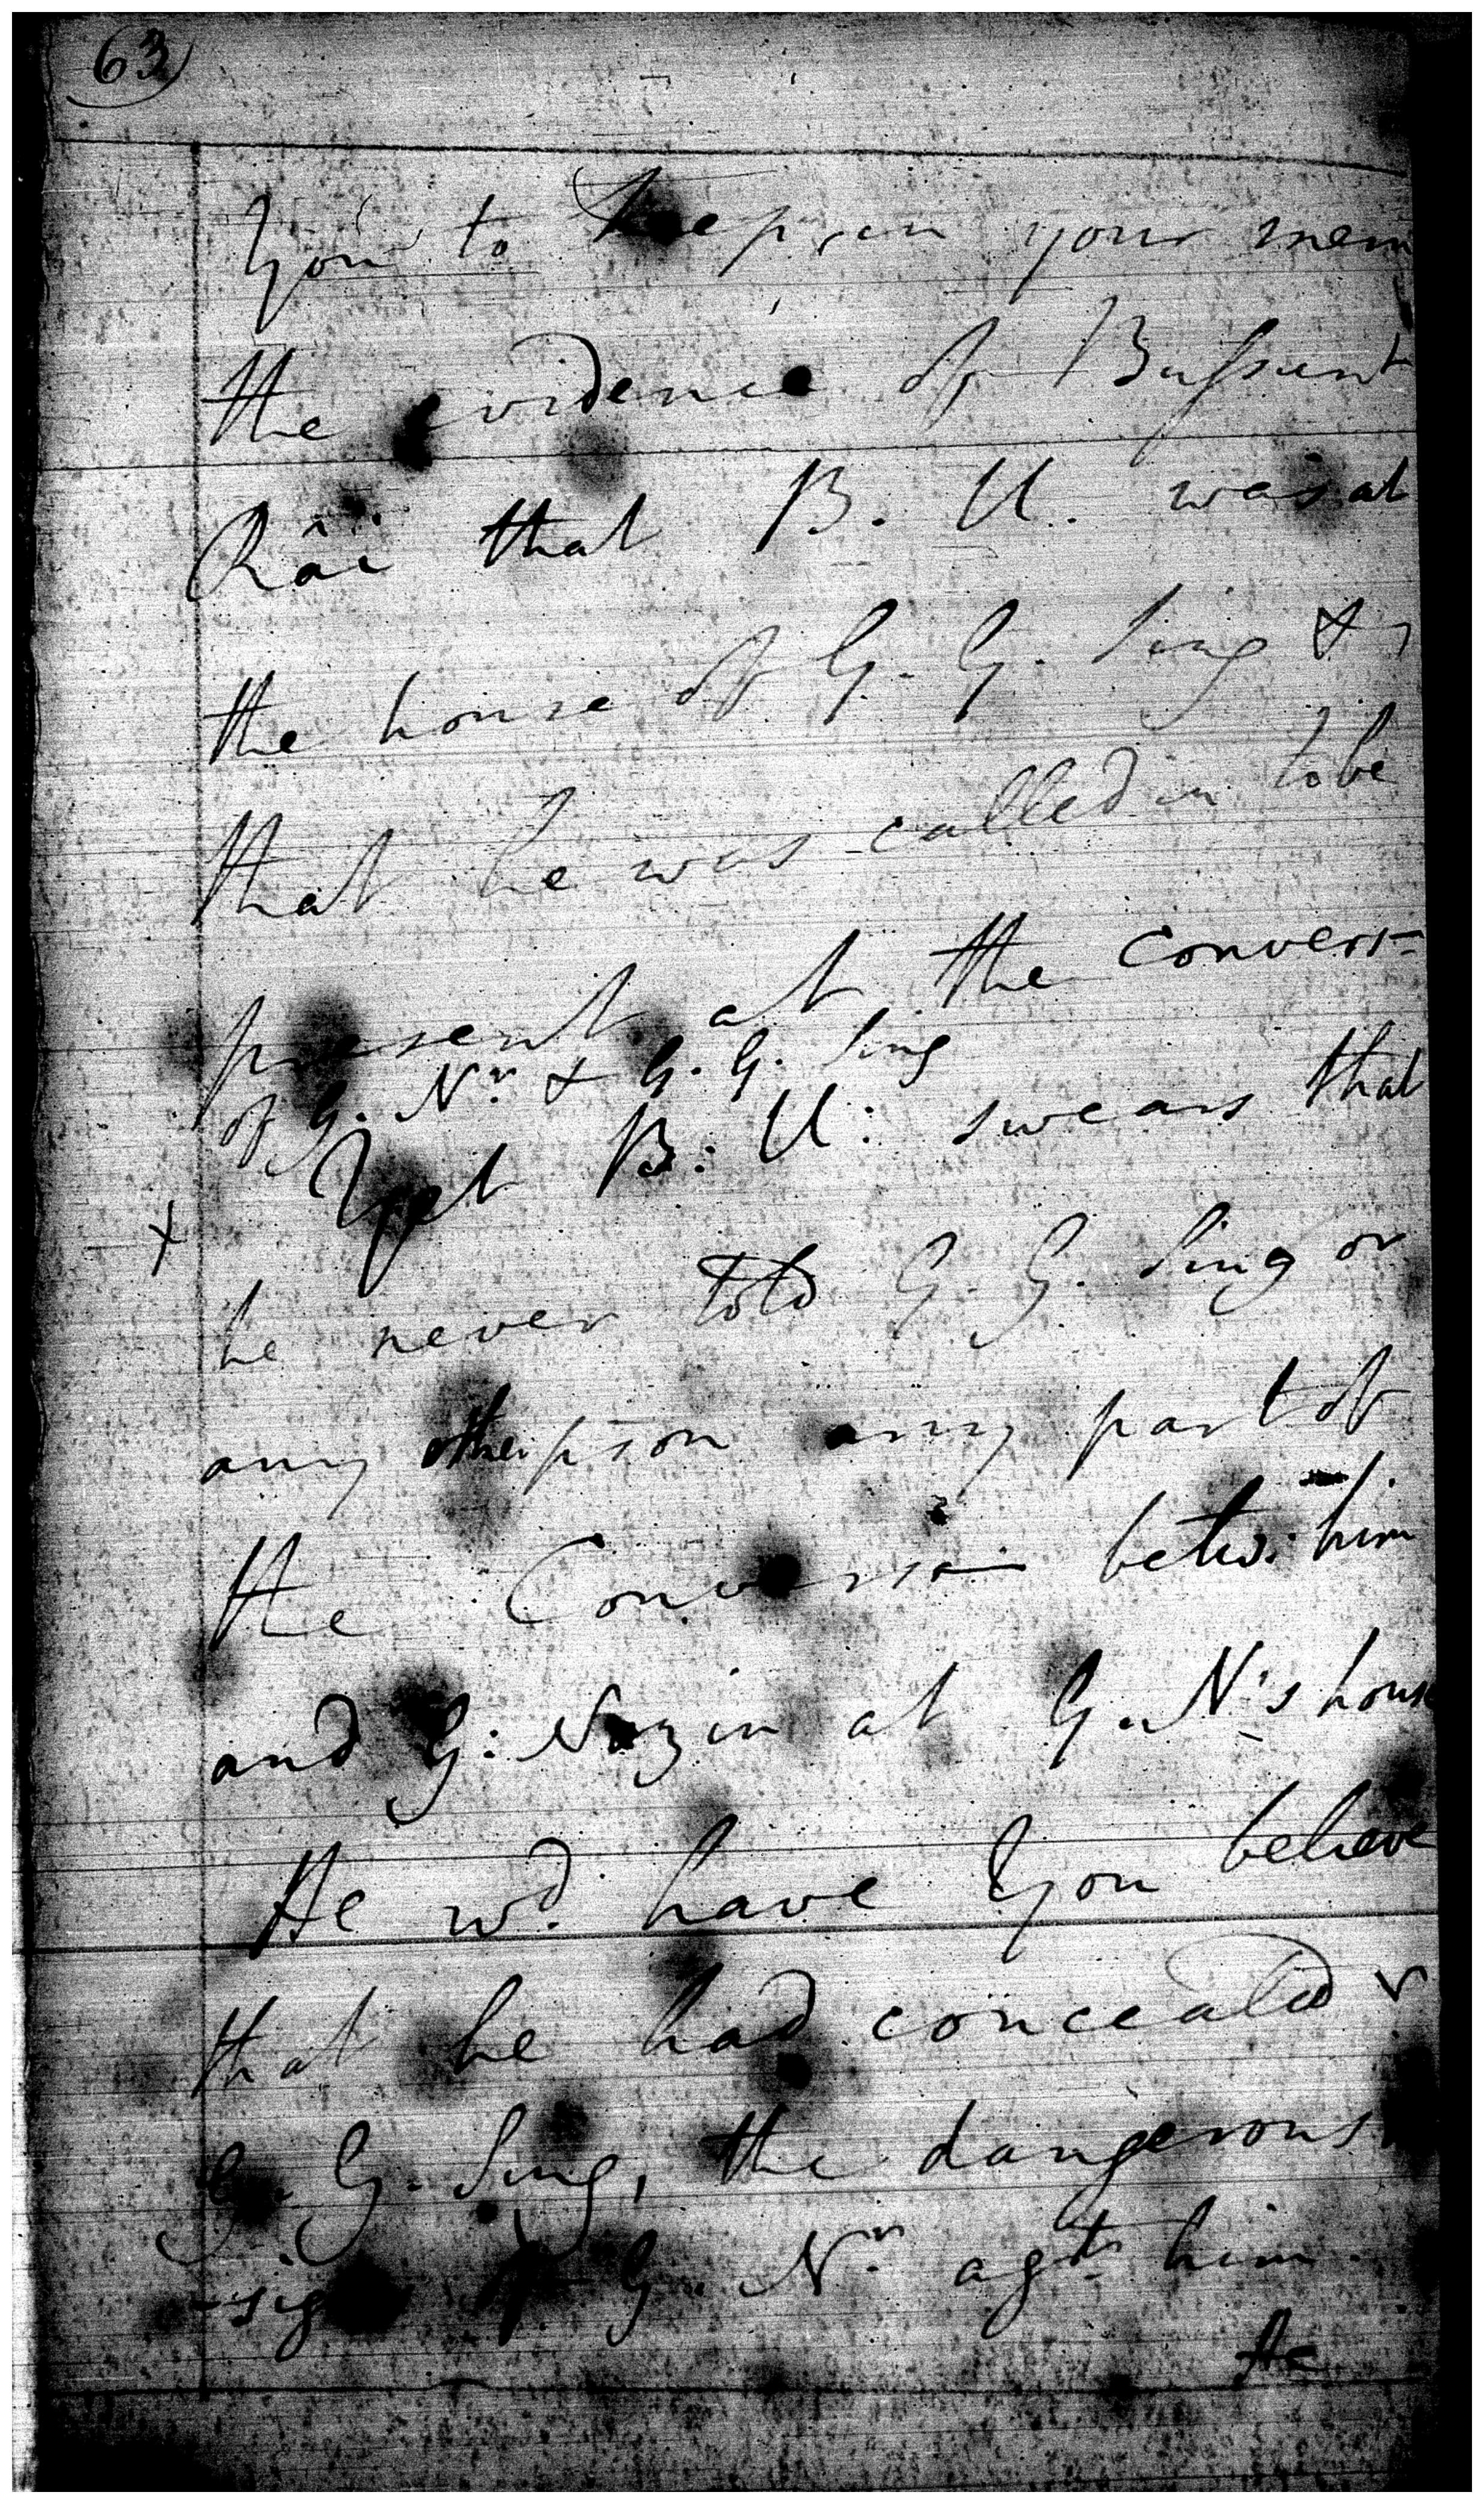 63
You to keep in your mem
the evidence of Bussunt
Râi that B. U. was at
the house of G. G. Sing &
that he was called in to be
present at the convers=
of G. Nr. & G. G. Sing
Yet B. U. swears that
x
he never told G. G. Sing or
any other pson any part of
the Conversn betw: him
and G: Nazir at G. N's house
He wd. have You believe
that he had concealed
G. G. Sing, the dangerous
-signs of G. Nr. agt. him.
He